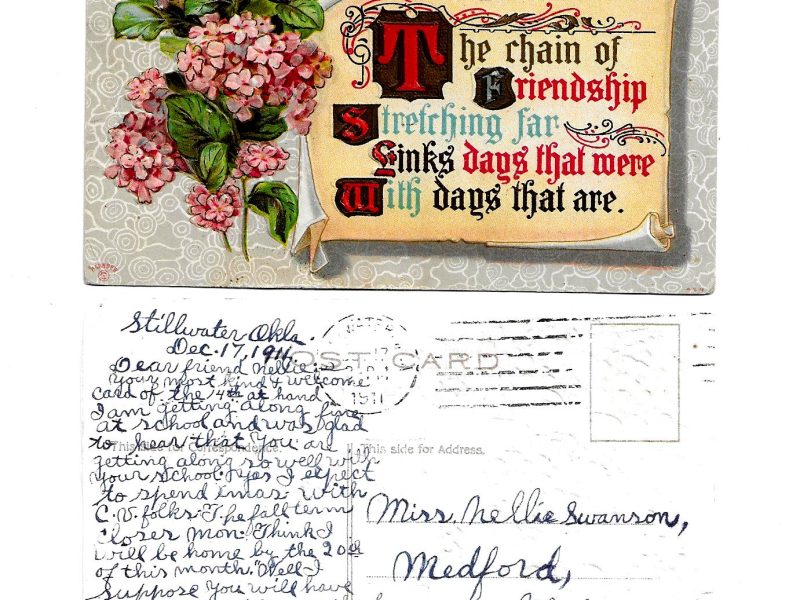 The chain of
Friendship
Stretching far
Links days that were
With days that are.
Stillwater Okla.
Dec. 17, 1911.
POST CARD
1911
Dear friend Nellie:-
Your most kind & welcome
card of the 14th at hand
I am getting along fine
at school and was glad
to hear that you are
This side for Correspondence.
This side for Address.
getting along so well with
your school. Yes I expect
to spend xmas with
C.V. folks. The fall term
closes Mon. Think I
will be home by the 20th
of this month. Well I
suppose you will have
Miss. Nellie Swanson,
Medford,